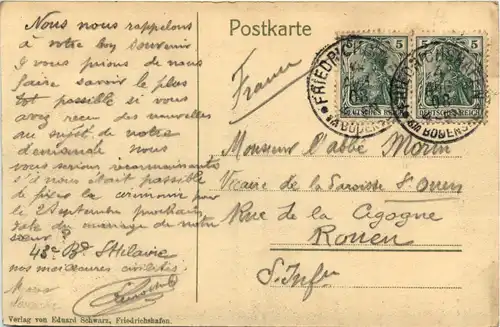 Postkarte
Nous nous rappelons
à votre bon souvenir
& vous prions de nous
faire savoir le plus
tôt possible si vous
avez reçu des nouvelles
au sujet de notre
demande nous
vous serions reconnaissants
s'il nous était possible
de fixer la cérémonie pour
le 28 septembre prochain,
date du mariage de notre
sœur?
43 Bd St Hilaire
nos meilleures civilités
France
Monsieur l'abbé Morin
Vicaire de la Paroisse St Ouen
Rue de la Cigogne
Rouen
S. Infre
5 5
DEUTSCHES REICH
FRIEDRICHSHAFEN
BODENSEE
Verlag von Eduard Schwarz, Friedrichshafen.